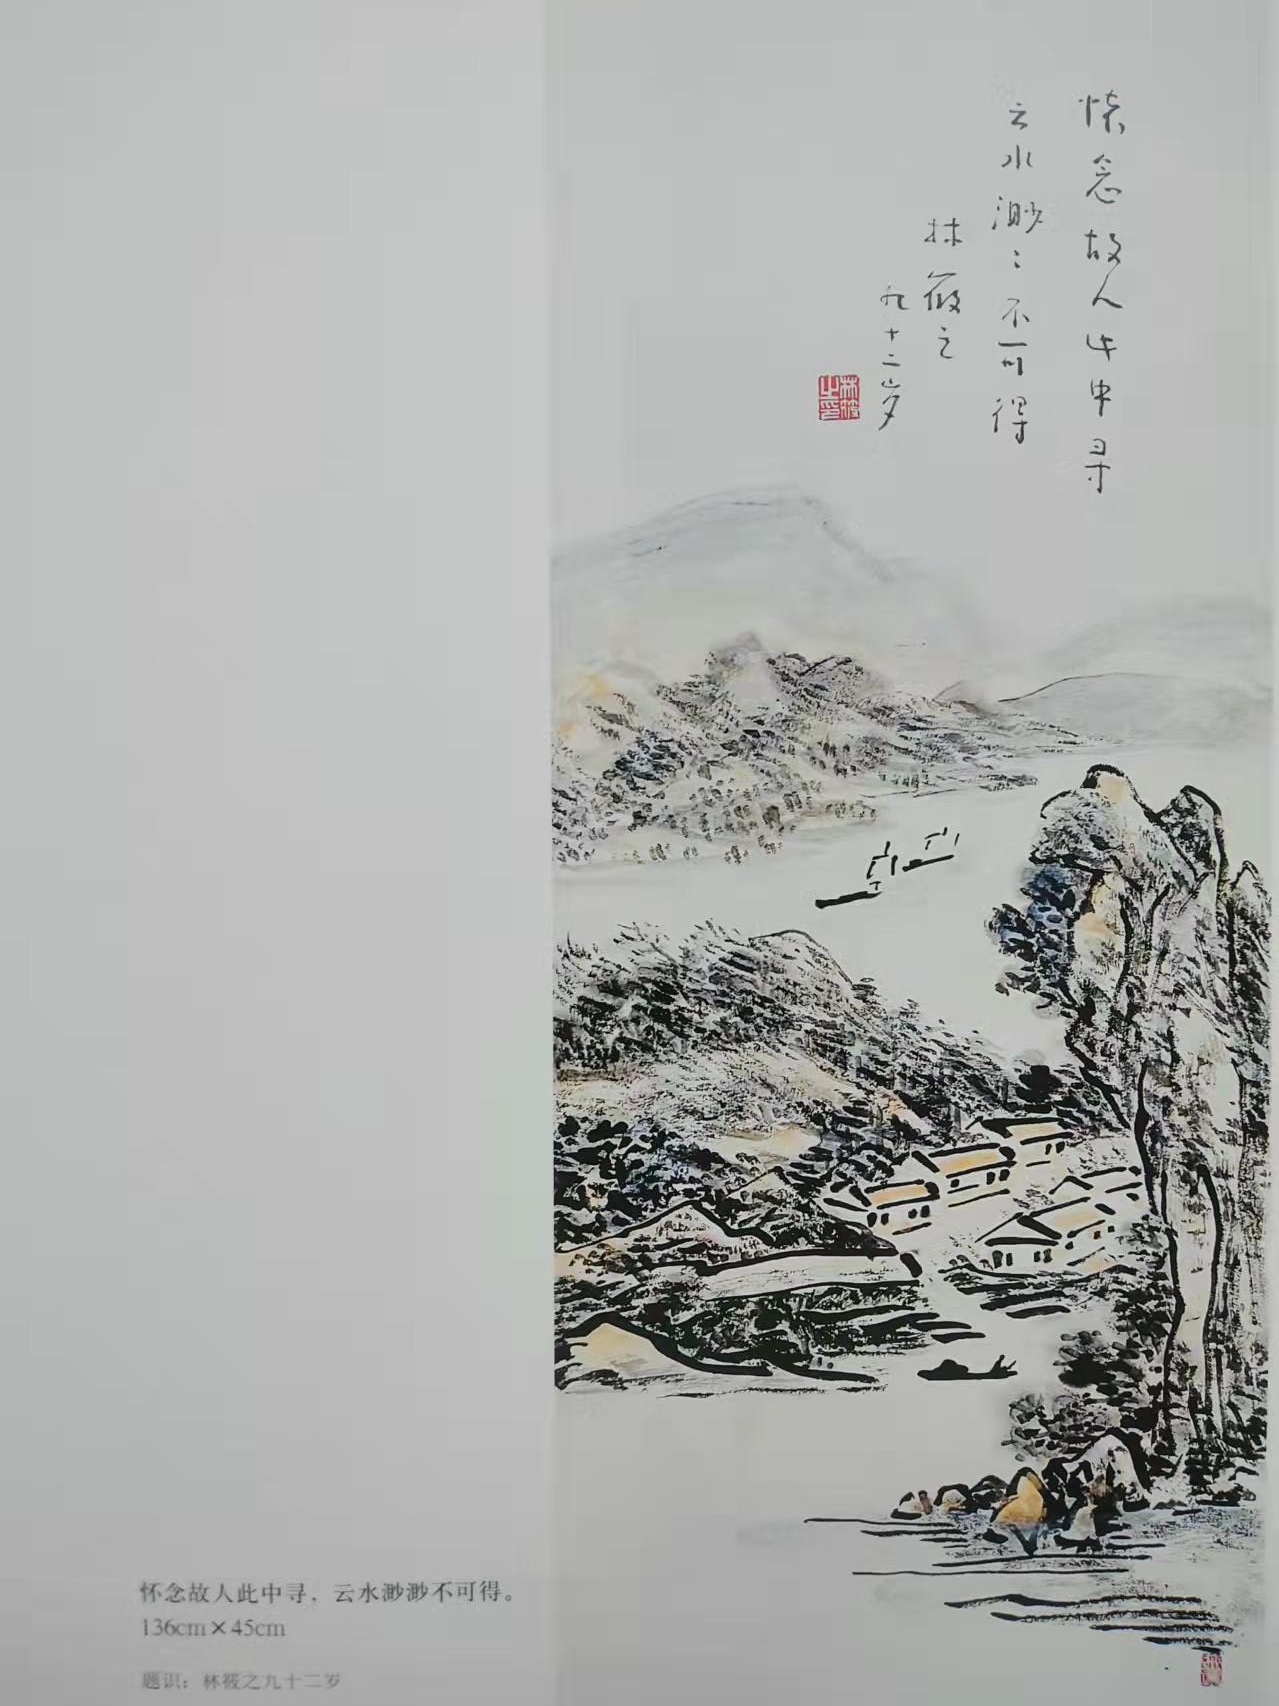 怀念故人此中寻
云水渺〻不可得
林筱之
九十二岁
林筱之印
怀念故人此中寻，云水渺渺不可得。
136cm×45cm
题识：林筱之九十二岁